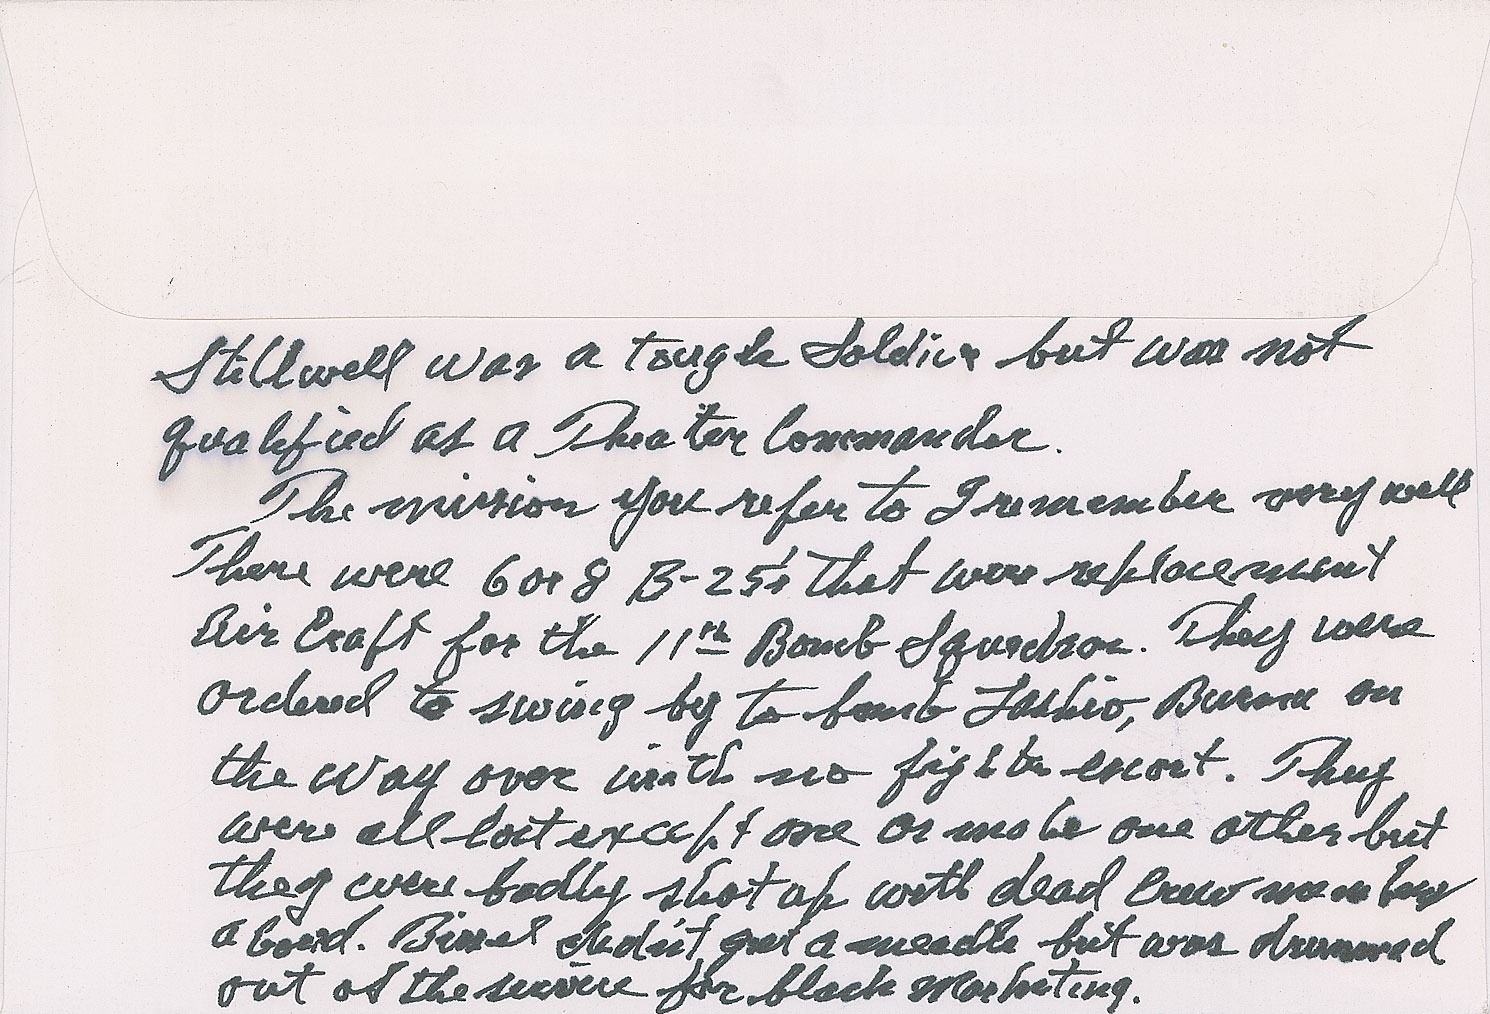 Stillwell was a tough Soldier but was not
qualified as a Theater Commander.
The mission you refer to I remember very well
There were 6 or 8 B-25's that were replacement
Air Craft for the 11th Bomb Squadron. They were
ordered to swing by to bomb Lashio, Burma on
the way over with no fighter escort. They
were all lost except one or maybe one other but
they were badly shot up with dead Crew members
aboard. Bissel didn't get a meadle but was drummed
out of the service for black Marketing.